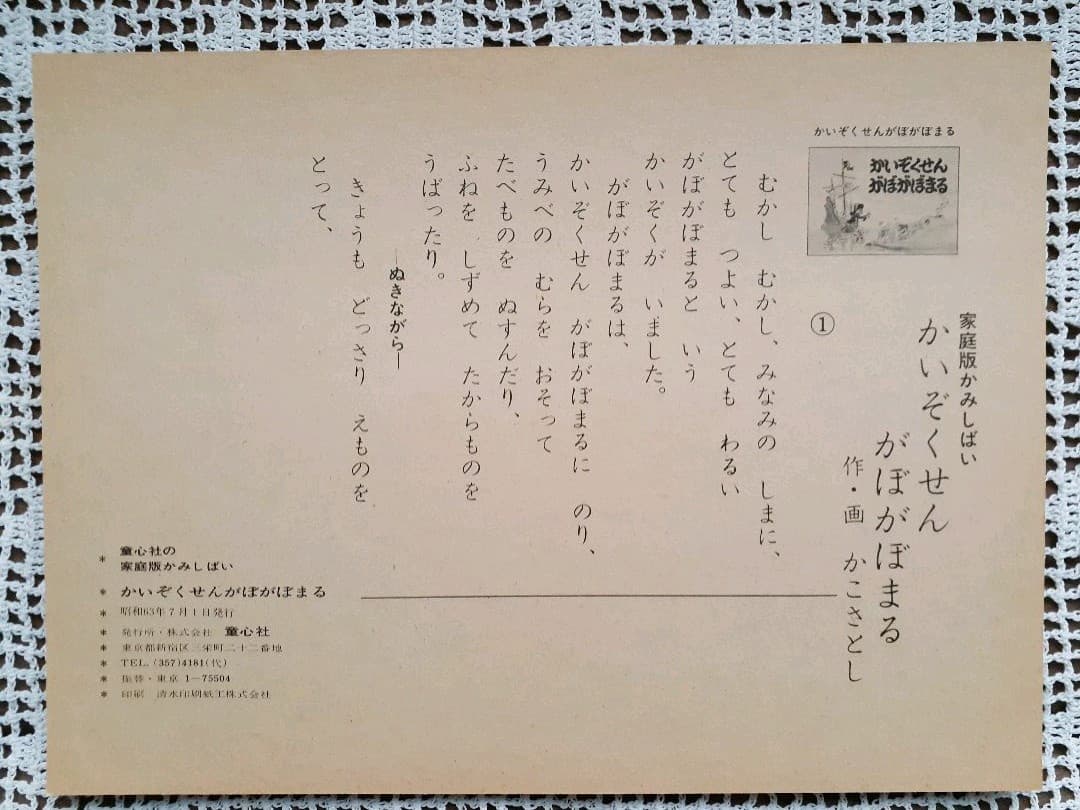 かいぞくせんがぼがぼまる
かいぞくせん
がぼがぼまる
家庭版かみしばい
かいぞくせん
がぼがぼまる
作・画　かこさとし
①
むかし　むかし、みなみの　しまに、
とても　つよい、とても　わるい
がぼがぼまると　いう
かいぞくが　いました。
がぼがぼまるは、
かいぞくせん　がぼがぼまるに　のり、
うみべの　むらを　おそって
たべものを　ぬすんだり、
ふねを　しずめて　たからものを
うばったり。
―ぬきながら―
きょうも　どっさり　えものを
とって、
＊ 童心社の
家庭版かみしばい
＊ かいぞくせんがぼがぼまる
＊ 昭和63年7月1日発行
＊ 発行所・株式会社　童心社
＊ 東京都新宿区三栄町二十二番地
＊ TEL.（357）4181（代）
＊ 振替・東京 1―75504
＊ 印刷　清水印刷紙工株式会社